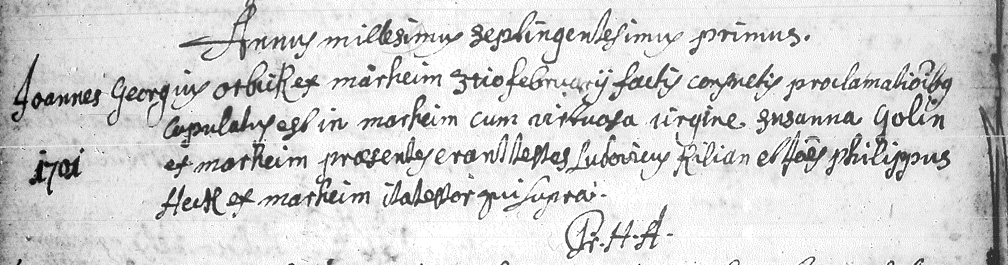 Annus millesimus septingentesimus primus.
Joannes Georgius orbick ex märheim 3tio februarij factis consuetis proclamationibq
Copulatus est in marheim cum virtuosa virgine susanna Golin
1701
ex marheim præsentes erant testes Ludovicus Kilian et Joës philippus
Heck ex marheim ita testor qui supra.
H. A.